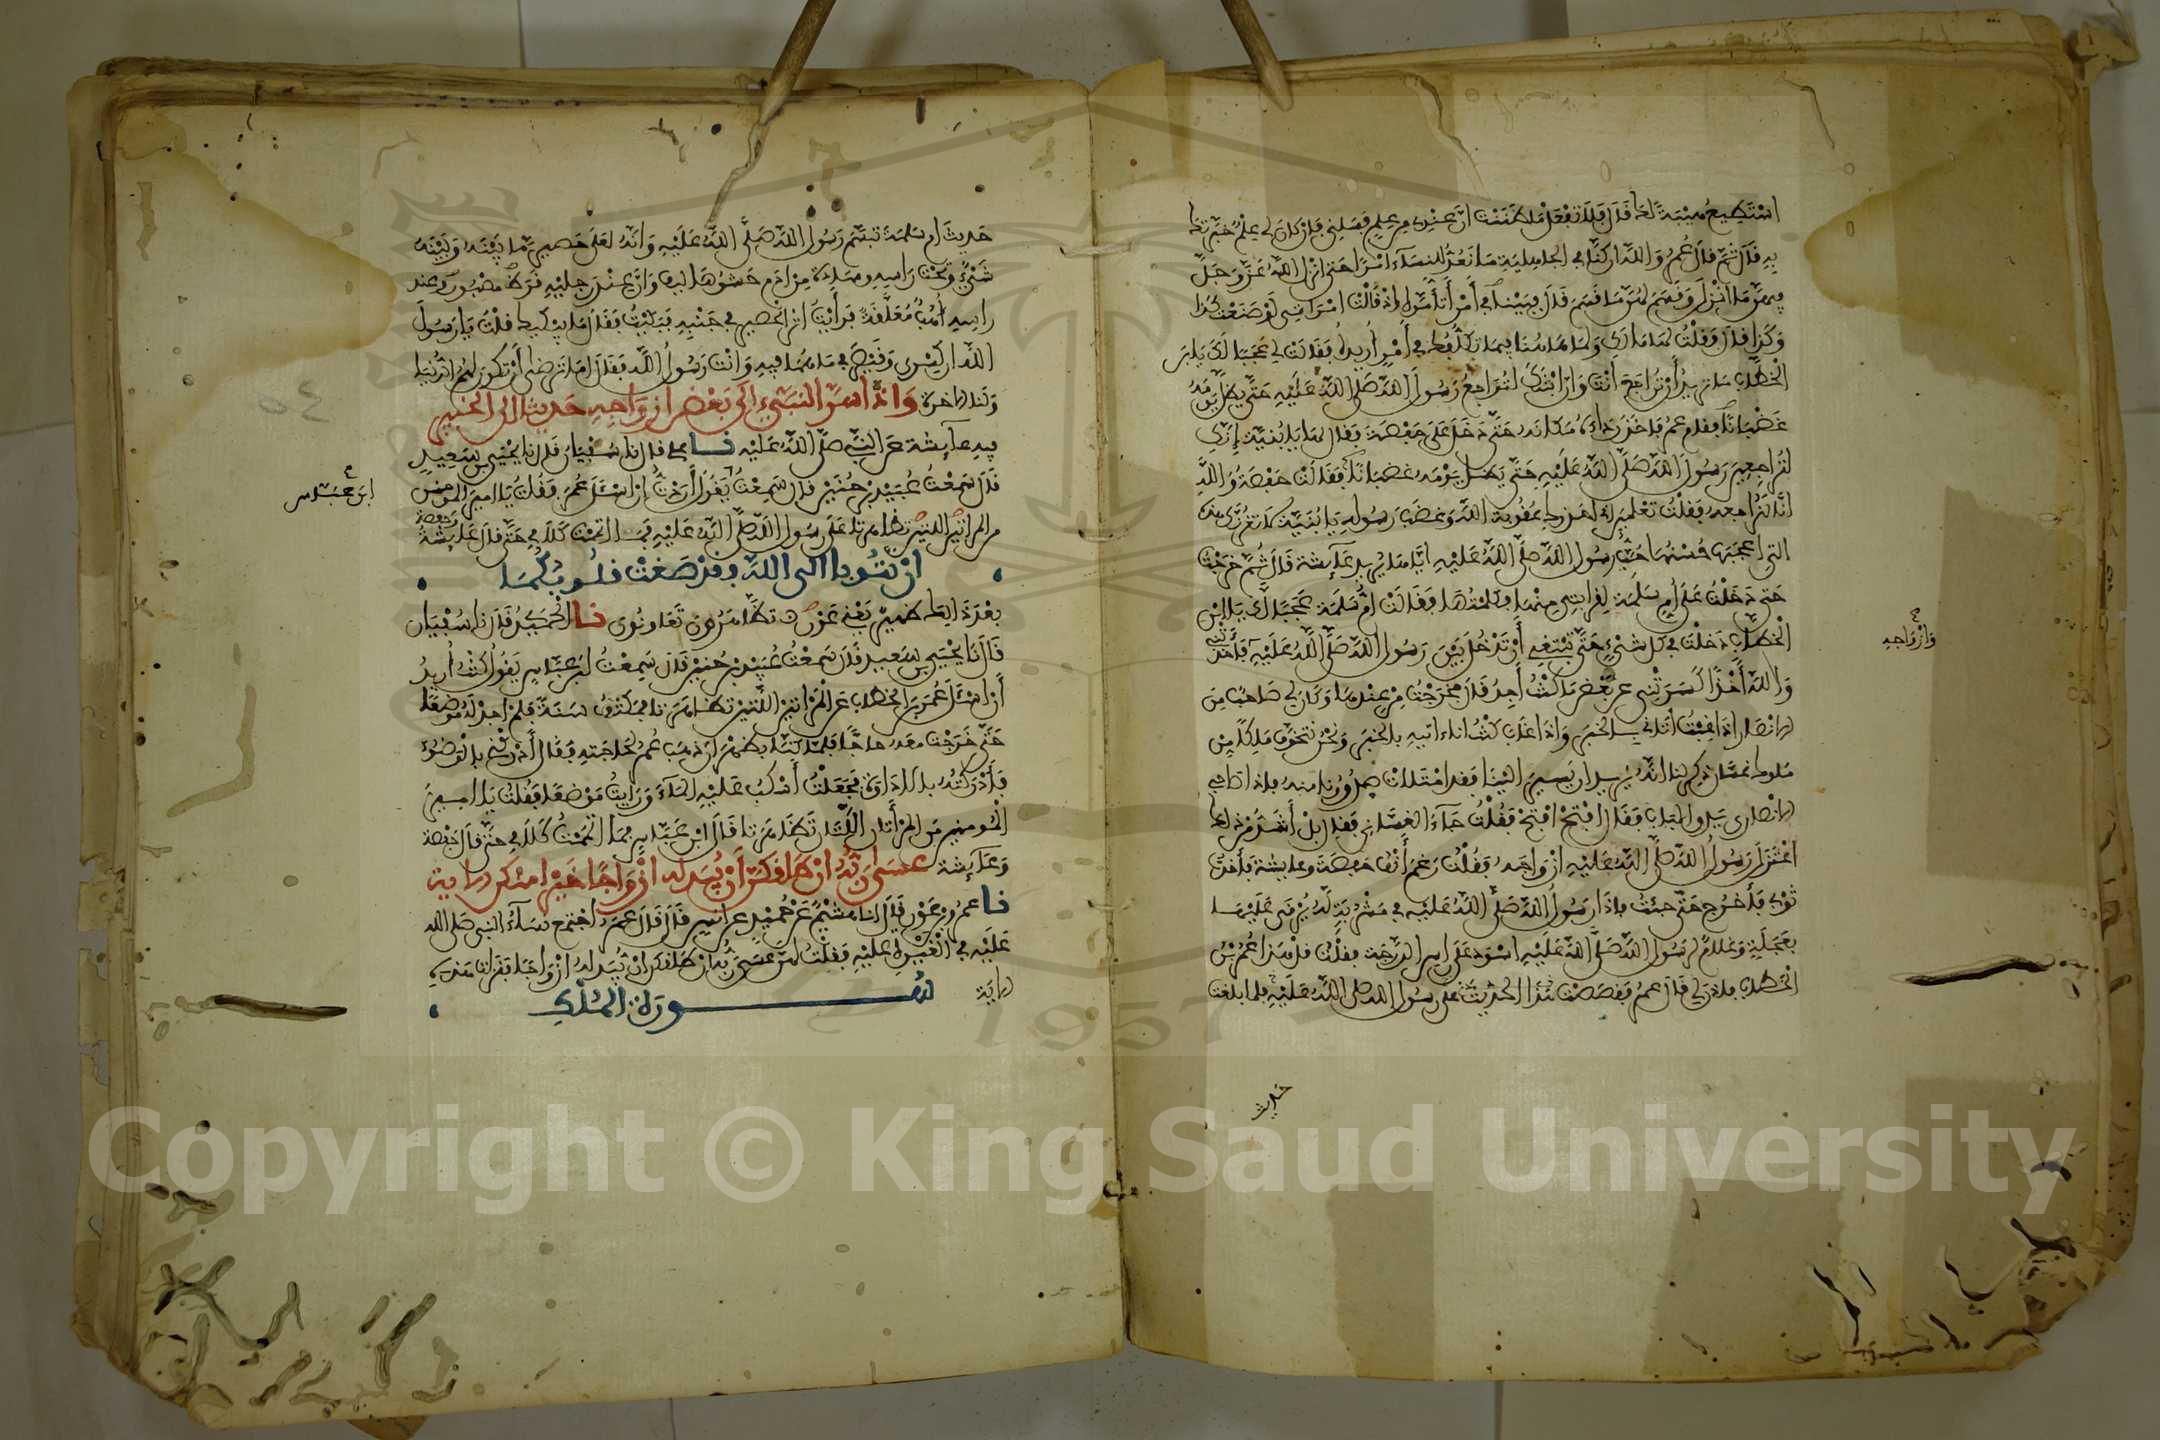 استطيع هيبة له قال فلا تفعل ما ظننت ان عندي من علم فسلني فان كان لي علم خبرتك
به قال ثم قال عمر والله ان كنا في الجاهلية ما نعد للنساء امرا حتى انزل الله عز وجل
فيهن ما انزل وقسم لهن ما قسم قال فبينا في أمر أتأمره اذ قالت امراتي لو صنعت كذا
وكذا قال فقلت لها مالك ولما هاهنا فيما تكلفك في أمر اريده فقالت لي عجبا لك يا بن
الخطاب ما تريد أن تراجع انت وان ابنتك لتراجع رسول الله صلى الله عليه حتى يظل يومه
غضبانا فقام عمر فاخذ رداءه مكانه حتى دخل على حفصة فقال لها يا بنية إنك
لتراجعين رسول الله صلى الله عليه حتى يظل يومه غضبانا فقالت حفصة والله
انا لنراجعه فقلت تعلمين اني احذرك عقوبة الله وغضب رسوله يا بنية لا تغرنك هذه
التي اعجبها حسنها حب رسول الله صلى الله عليه اياها يريد عائشة قال ثم خرجت
حتى دخلت على ام سلمة لقرابتي منها فكلمتها فقالت ام سلمة عجبا لك يا بن
الخطاب دخلت في كل شيء حتى تبتغي أن تدخل بين رسول الله صلى الله عليه فأخذتني
وازواجه
والله أخذا كسرتني عن بعض ما كنت أجد قال فخرجت من عندها وكان لي صاحب من
الانصار اذا غبت اتاني بالخبر واذا غاب كنت انا اتيه بالخبر ونحن نتخوف ملكا من
ملوك غسان ذكر لنا انه يريد ان يسير الينا فقد امتلات صدورنا منه فاذا صاحبي
الانصاري يدق الباب فقال افتح افتح فقلت جاء الغساني فقال بل أشد من ذلك
اعتزل رسول الله صلى الله عليه ازواجه فقلت رغم أنف حفصة وعايشة فأخذت
ثوبي فأخرج حتى جئت فاذا رسول الله صلى الله عليه في مشربة له يرقى عليها
بعجلة وغلام لرسول الله صلى الله عليه اسود على راس الدرجة فقلت قل هذا عمر بن
الخطاب فاذن لي قال عمر فقصصت هذا الحديث على رسول الله صلى الله عليه فلما بلغت
حديث
حديث ام سلمة تبسم رسول الله صلى الله عليه وانه لعلى حصير ما بينه وبينه
شيء وتحت راسه وسادة من ادم حشوها ليف وان عند رجليه قرظا مصبورا وعند
راسه أهب معلقة فرأيت اثر الحصير في جنبه فبكيت فقال ما يبكيك فقلت يا رسول
الله ان كسرى وقيصر في ما هما فيه وانت رسول الله فقال اما ترضى أن تكون لهم الدنيا
ولنا الاخرة واذ أسر النبيء الى بعض ازواجه حديثا الى الخبير
فيه عايشة عن النبي صلى الله عليه نا علي قال نا سفيان قال نا يحيى بن سعيد
قال سمعت عبيد بن حنين قال سمعت يقول أردت ان اسئل عمر فقلت يا امير المومنين
ابن عباس
من المراتين اللتين تظاهرتا على رسول الله صلى الله عليه فما اتممت كلامي حتى قال عايشة وحفصة
ان تتوبا الى الله فقد صغت قلوبكما
بعد ذلك ظهير يعني عون تظاهرون تعاونون نا الحميدي قال نا سفيان
قال نا يحيى بن سعيد قال سمعت عبيد بن حنين قال سمعت ابن عباس يقول كنت أريد
أن اسئل عمر بن الخطاب عن المراتين اللتين تظاهرتا فمكثت سنة فلم اجد له موضعا
حتى خرجت معه حاجا فلما كنا بظهران ذهب عمر لحاجته فقال أدركني بالوضوء
فأدركته بالاداوة فجعلت أسكب عليه الماء ورايت موضعا فقلت يا امير
المومنين من المرأتان اللتان تظاهرتا قال ابن عباس فما اتممت كلامي حتى قال حفصة
وعائشة عسى ربه ان طلقكن أن يبدله ازواجا خيرا منكن الاية
نا عمرو بن عون قال انا هشيم عن حميد عن انس قال قال عمر اجتمع نساء النبي صلى الله
عليه في الغيرة عليه فقلت لهن عسى ربه ان طلقكن ان يبدله ازواجا فنزلت هذه
الاية سورة الملك
1957
Copyright © King Saud University